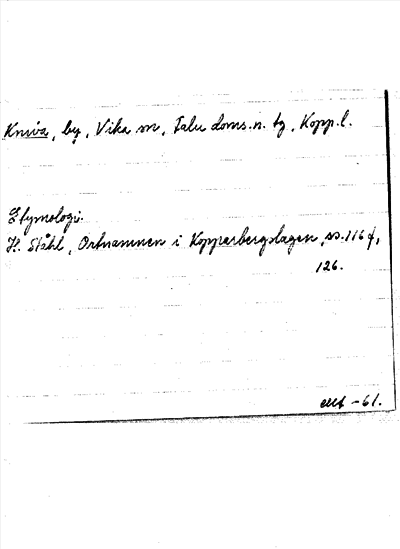 Kniva, by, Vika sn, Falu doms.n. tg, Kopp.l.
Etymologi:
H. Ståhl, Ortnamnen i Kopparbergslagen, ss. 116 f,
126.
-61.